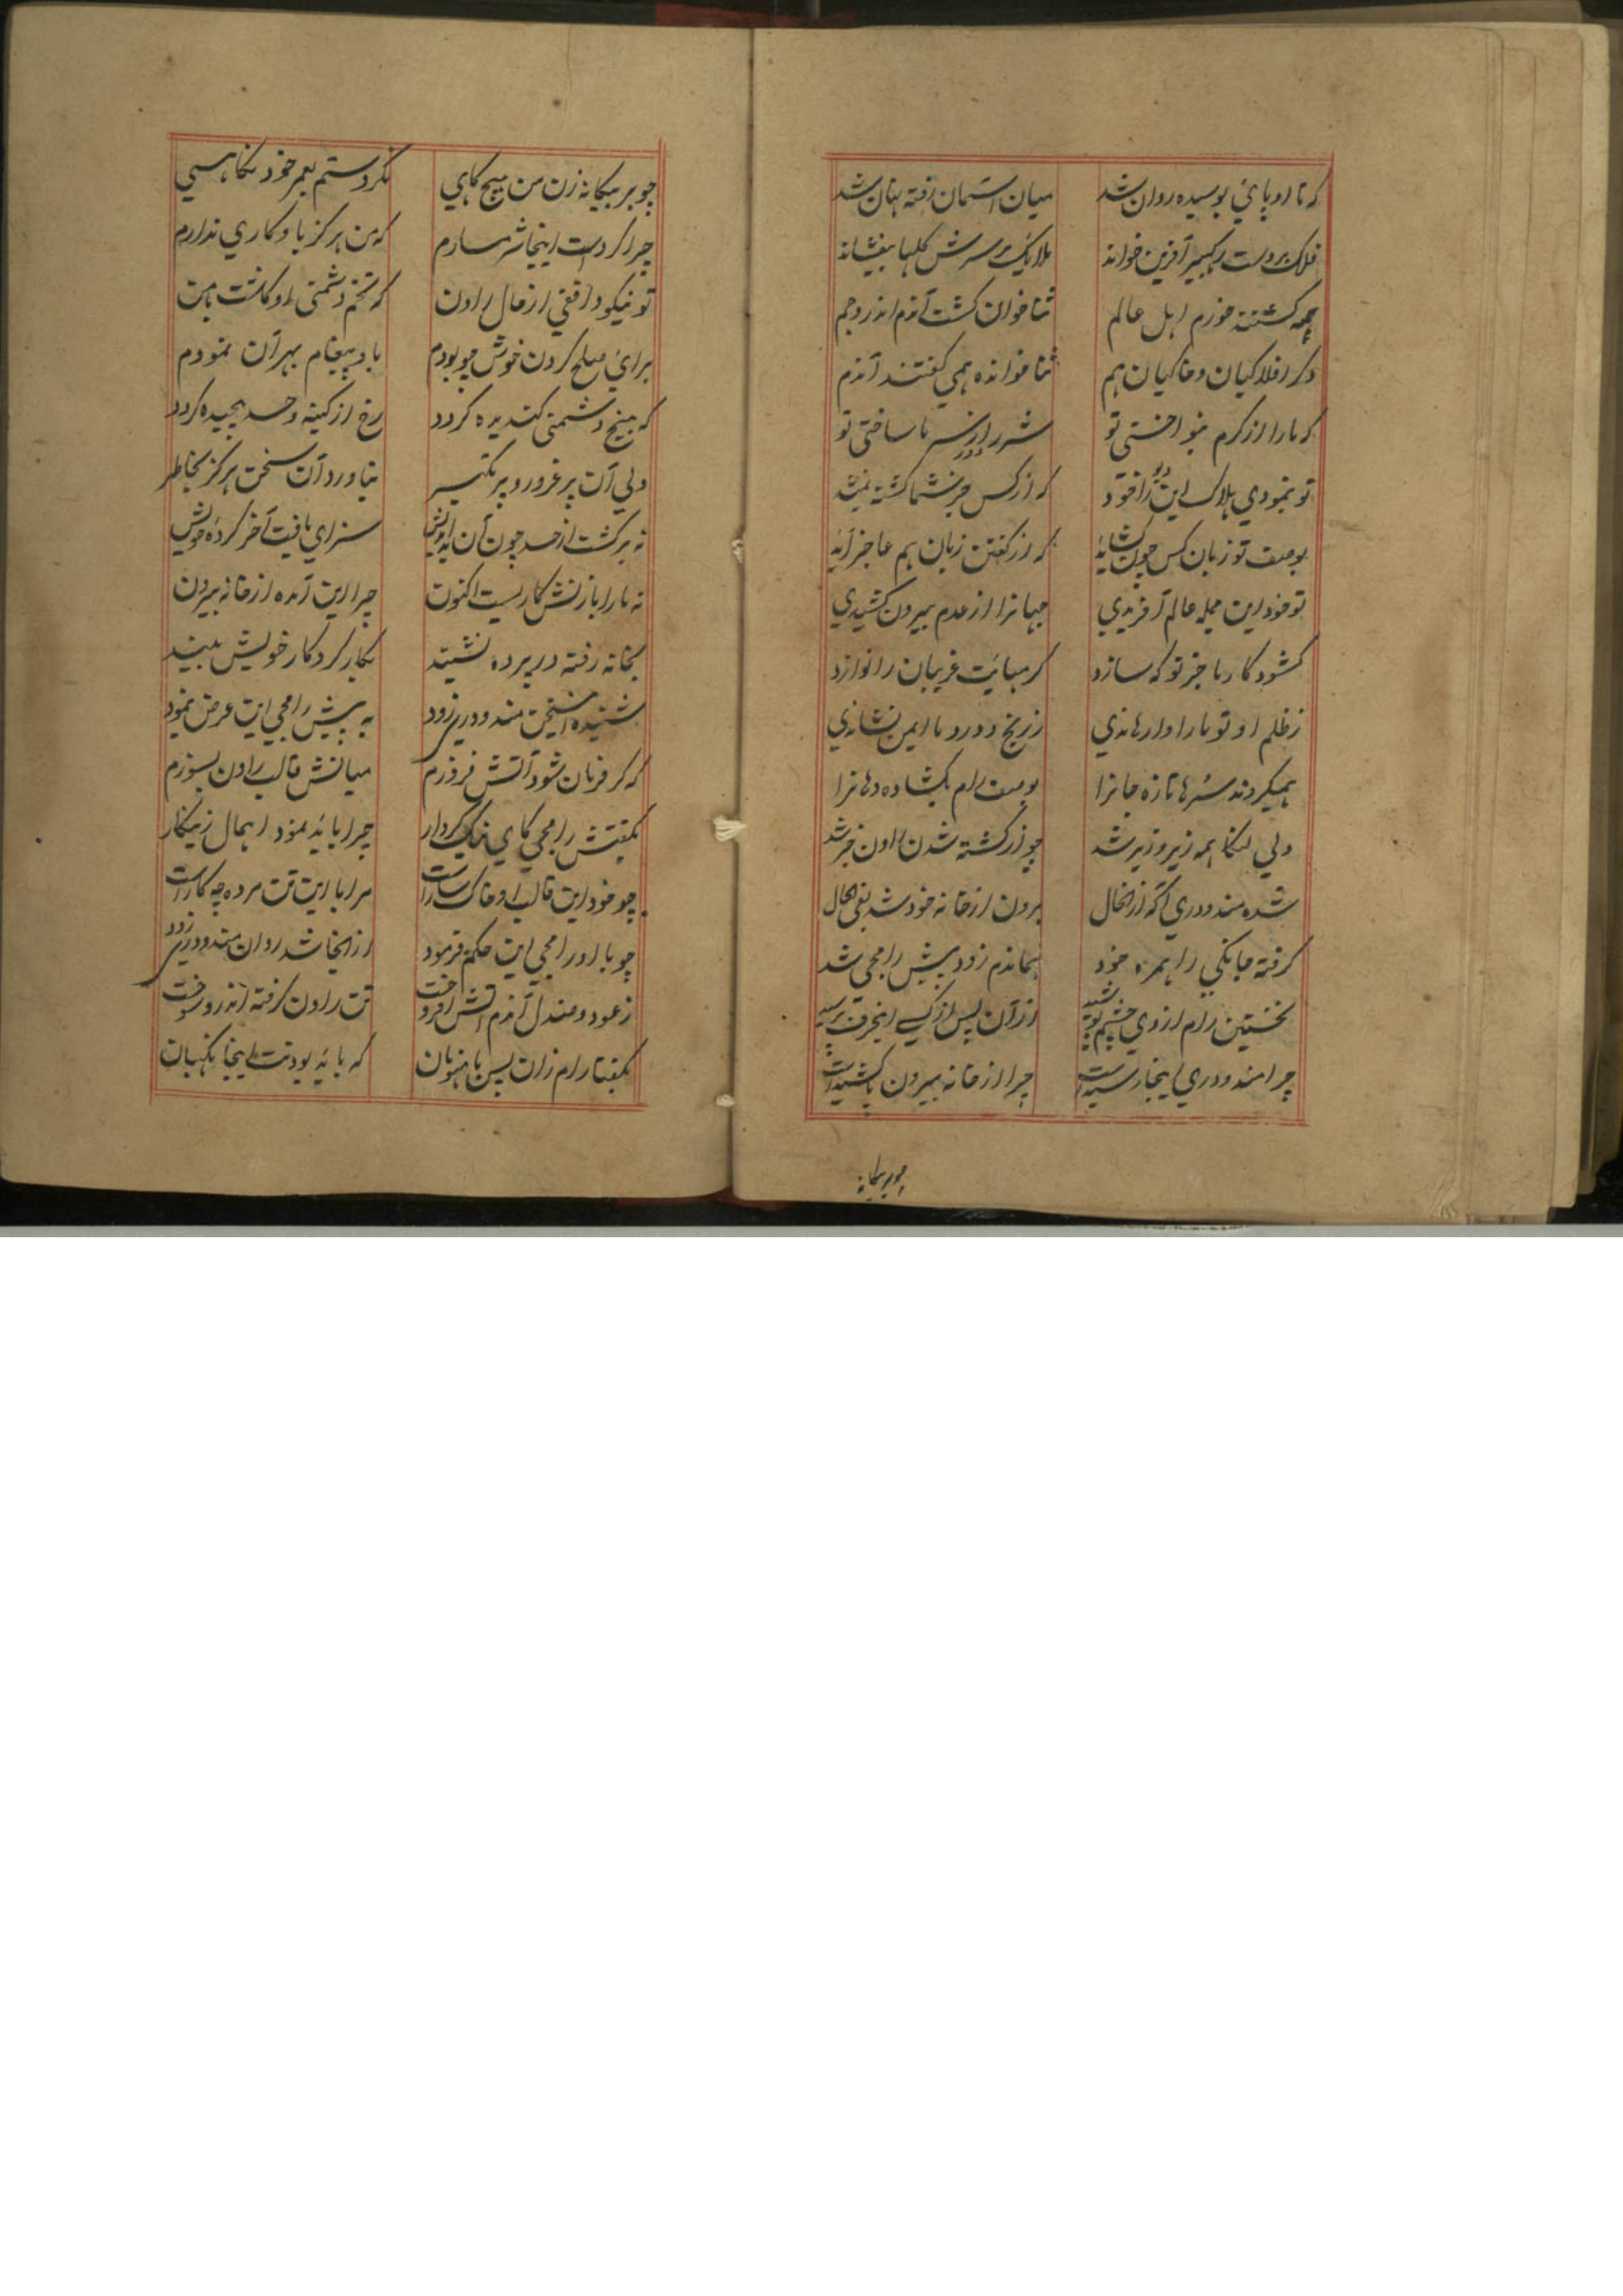 که تا او پائی بوسیده روان شد میان آسمان رفته نهان شد
فلک بر دست رگبیر آفرین خواند ملایک بر سرش گلها بیفشاند
همه گشتند خورم اهل عالم ثنا خوان گشت آندم اندر و جم
دگر افلاکیان و خاکیان هم ثنا خوانده همی گفتند آندم
که ما را از کرم بنواختی تو شرر از سر ما ساختی تو
تو نمودی هلاک این را که از کس جز شما کشته نمیشد
بوصف تو زبان کس چون گشاید که از گفتن زبان هم عاجز آید
تو خود این جمله عالم آفریدی جهانرا از عدم بیرون کشیدی
گشود کار ما جز تو که سازد کرمهایت غریبان را نوازد
ز ظلم او تو ما را وارهاندی ز رنج و درد ما ایمن نشاندی
همیکردند سرها تازه جانرا بوصف رام بگشاده دهانرا
ولی لنکا همه زیر و زبر شد چو از کشته شدن راون خبر شد
شده مندودری آگه از آنحال برون از خانه خود شد بفی الحال
گرفته جانکی را همره خود هماندم زود پیش رامجی شد
نخستین رام از وی چشم پوشید از آن پس از کسی اینحرف پرسید
چرا مندودری اینجا رسید است چرا از خانه بیرون پا کشید است
چو بر بیگانه
چو بر بیگانه زن من هیچ گاهی نکردستم بعمر خود نگاهی
چرا کرد است اینجا شرمسارم که من هرگز باو کاری ندارم
تو نیکو واقفی از حال راون که تخم دشمنی او کاشت با من
برای صلح کردن خوش چو بودم باو پیغام بهر آن نمودم
که بیخ دشمنی کندیده گردد رخ از کینه و حسد پیچیده گردد
ولی آن پر غرور و پر تکبر نیاورد آن سخن هرگز بخاطر
نه برگشت از حسد چون آن بداندیش سزای یافت آخر کرده خویش
نه ما را با زنش کاریست اکنون چرا این آمده از خانه بیرون
بخانه رفته در پرده نشیند بکار کردگار خویش بیند
شنیده این سخن مندودری زود به پیش رامجی این عرض نمود
که گر فرمان شود آتش فروزم میانش قالب راون بسوزم
بگفتش رامجی کای نیک کردار چرا باید نمود اهمال زینکار
چو خود این قالب او خاکسار است مرا با این تن مرده چه کار است
چو با او رامجی این حکم فرمود از آنجا شد روان مندودری زود
ز عود و صندل آندم آتش افروخت تن راون گرفته اندرو سوخت
بگفتا رام زان پس با هنومان که باید بودنت اینجا نگهبان